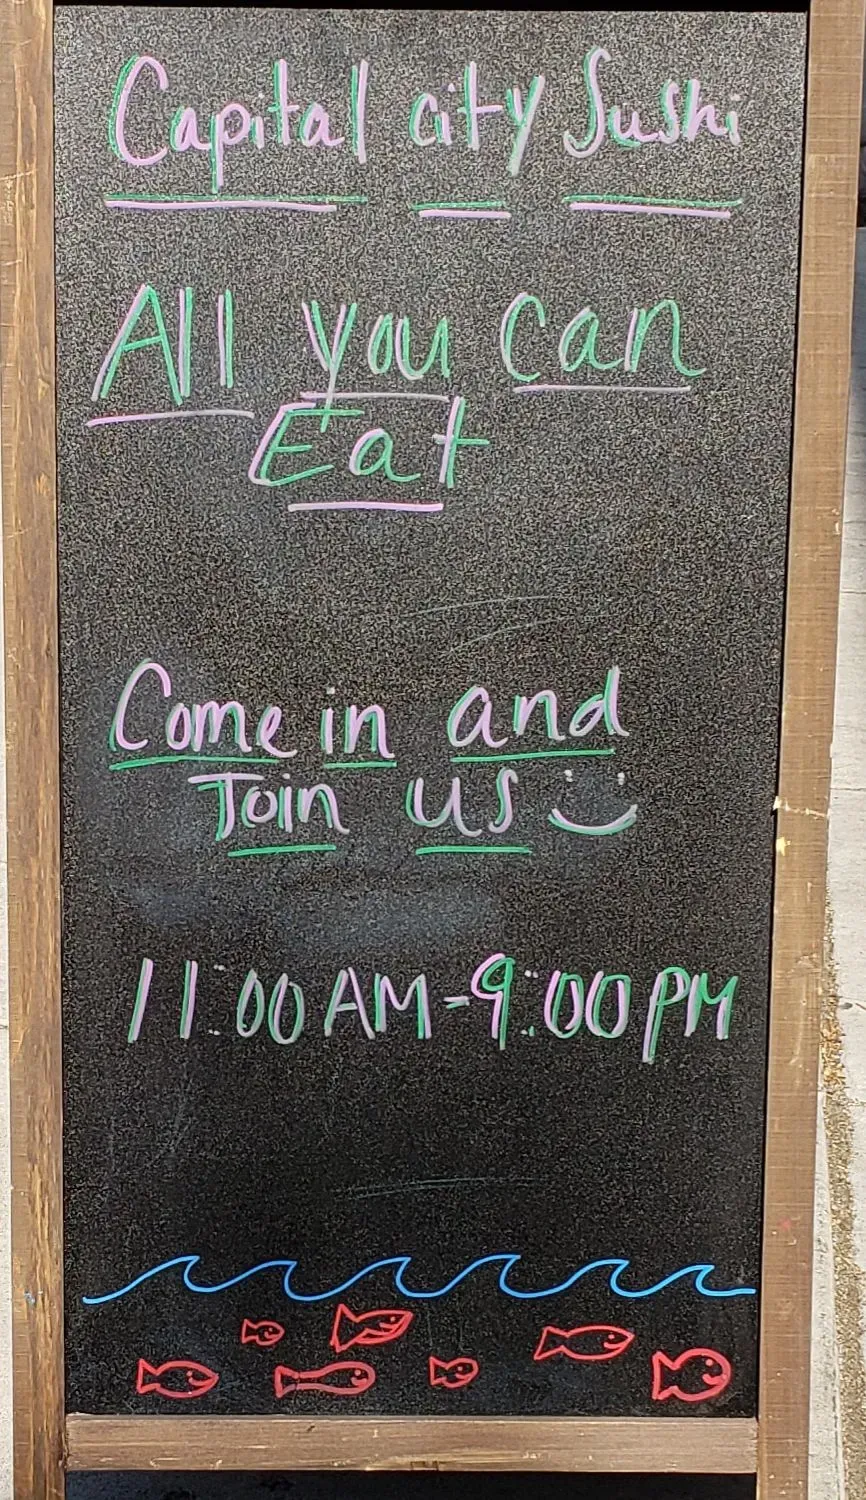 Capital city Sushi
All you can
Eat
Come in and
Join us
11:00 AM-9:00 PM